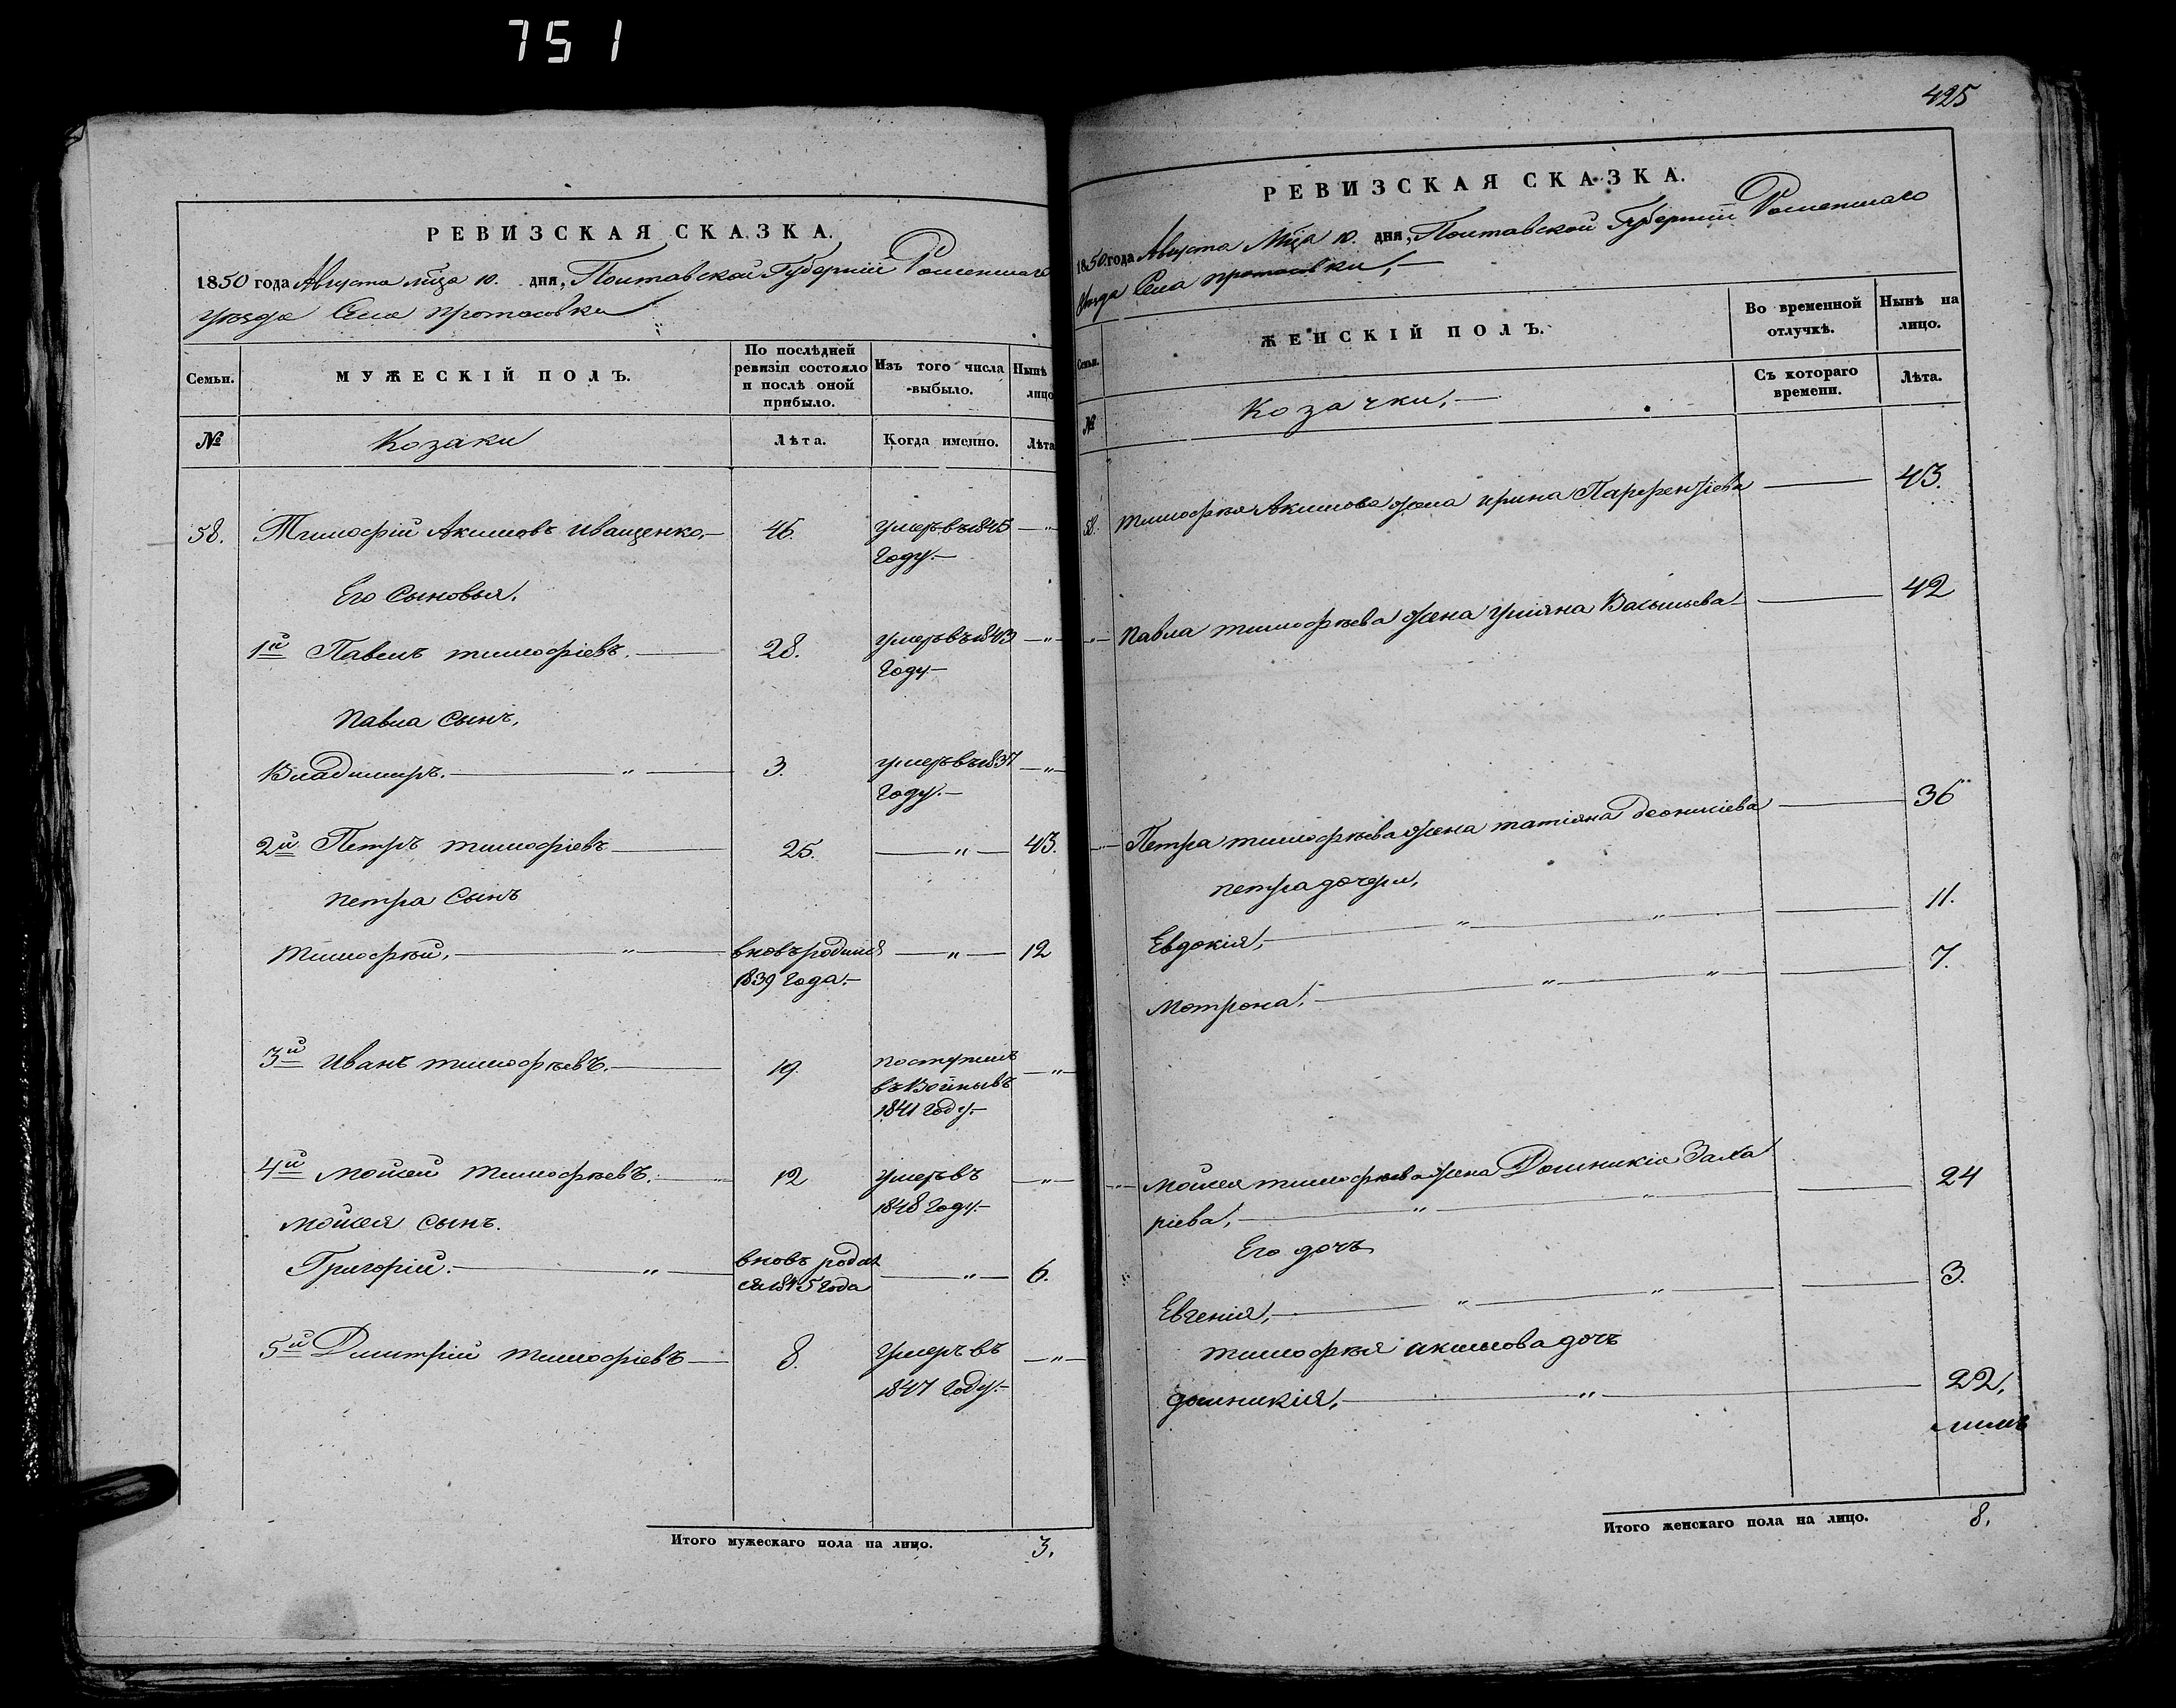 751
РЕВИЗСКАЯ СКАЗКА.
1850 года Августа мца 10. дня, Полтавской Губерніи Роменскаго
уѣзда Села Протасовки
Семьи.
МУЖЕСКІЙ ПОЛЪ.
По послѣдней
ревизіи состояло
и послѣ оной
прибыло.
Изъ того числа
выбыло.
Нынѣ
лицо
№
Козаки
Лѣта.
Когда именно.
Лѣта
58. Тимофій Акимовъ Иващенко,— 46. умеръ въ 1845 — " —
году.—
Его Сыновья.
1й Павелъ Тимофіевъ. — 28. умеръ въ 1843 — " —
году.—
Павла Сынъ,
Владимиръ. — " — 3. умеръ въ 1837 — " —
году.—
2й Петръ Тимофіевъ — 25. — " — 43.
Петра Сынъ
Тимофѣй, — " — вновь родился — " — 12
1839 года.—
3й Иванъ Тимофѣевъ. — 19. поступилъ
въ Войнывъ — " —
1841 году.—
4й Мойсей Тимофѣевъ. — 12 умеръ въ — " —
1848 году.—
Мойсея Сынъ.
Григорій. — " — вновь родил — " — 6.
ся 1845 года
5й Димитрій Тимофіевъ — 8. умеръ въ — " —
1847 году.—
Итого мужескаго пола на лицо. 3.
425
РЕВИЗСКАЯ СКАЗКА.
1850 года Августа Мца 10. дня, Полтавской Губерніи Роменскаго
Уѣзда Села Протасовки,—
Семьи.
ЖЕНСКІЙ ПОЛЪ.
Во временной
отлучкѣ.
Нынѣ на
лицо.
№
Козачки,—
Съ котораго
времени.
Лѣта.
58. Тимофѣя Акимова жена Ирина Парфентіева — 43.
" — Павла Тимофѣева жена Уліяна Васильева — 42
— " — Петра Тимофѣева жена Татіяна Леонтіева — 36
Петра дочери,
Евдокія, — " — " — 11.
Мотрона, — " — " — 7.
— " — Мойсея Тимофѣева жена Домникія Заха
ріева, — " — " — 24
Его дочь
Евгенія, — " — " — 3.
Тимофѣя Акимова дочь
Домникія, — " — 22,
Итого женскаго пола на лицо. 8.